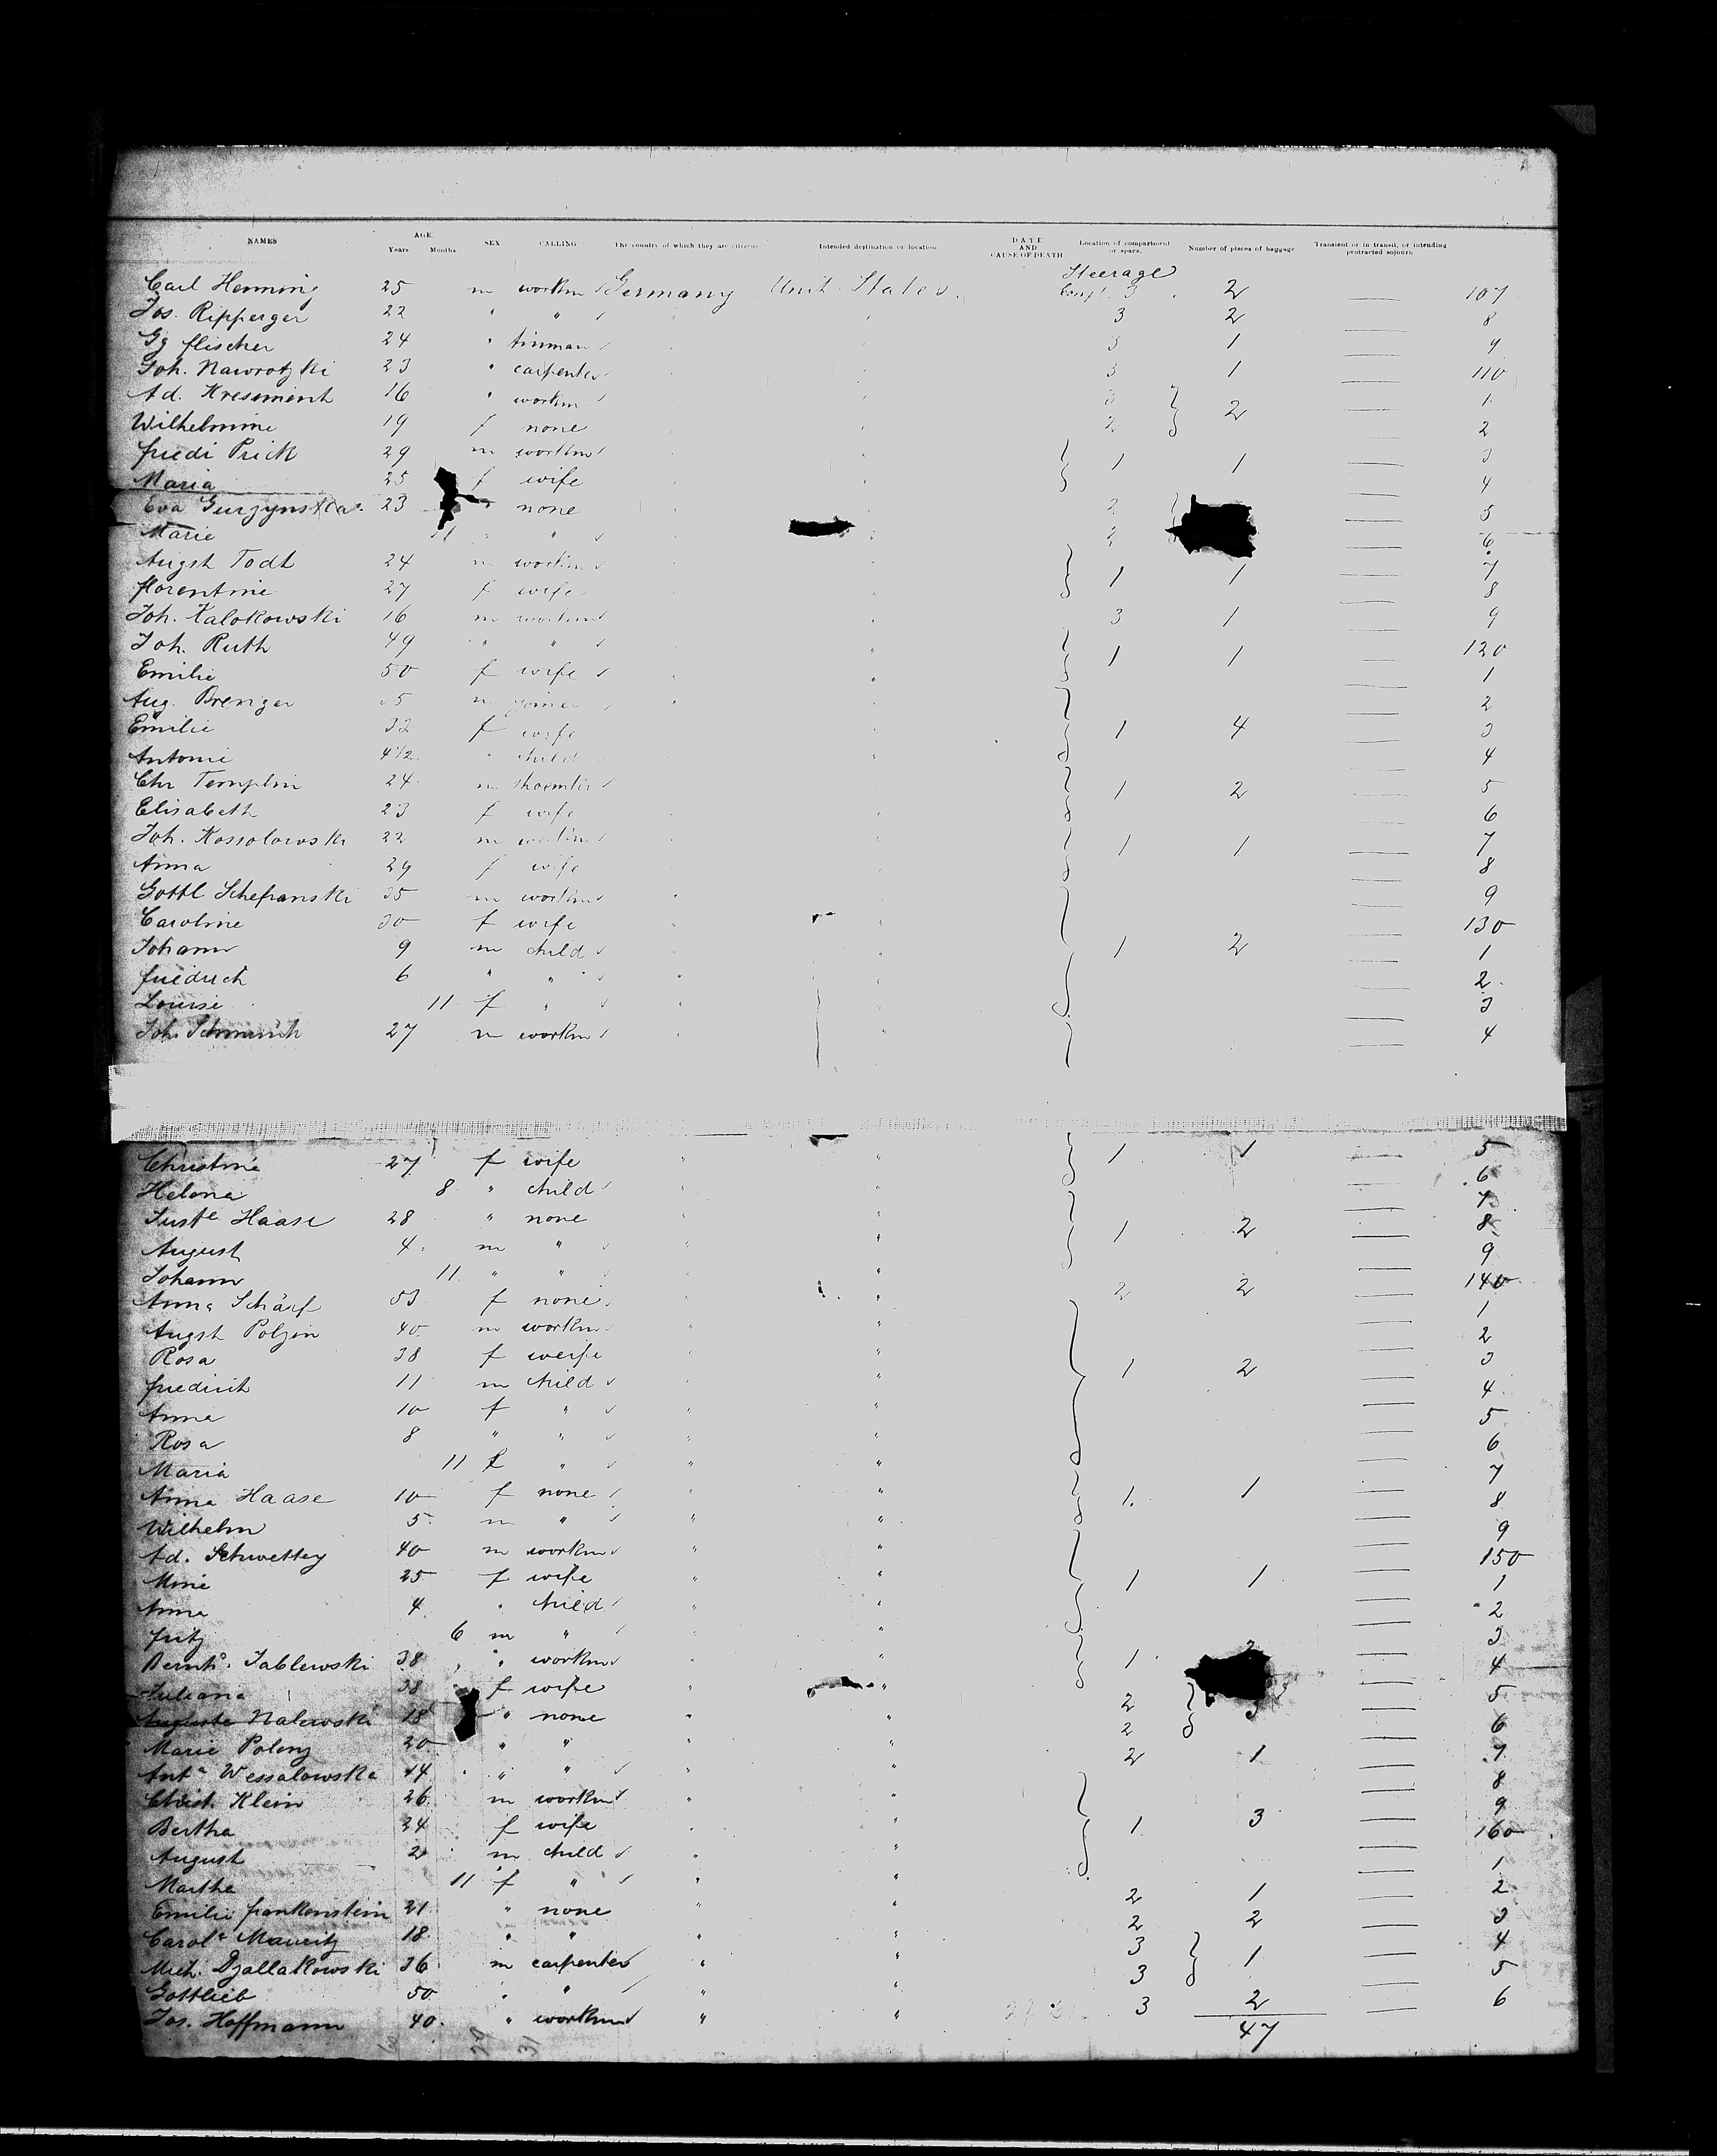 NAMES AGE. Years Months SEX CALLING The country of which they are citizens Intended destination or location DATE AND CAUSE OF DEATH Location of compartment or space. Number of pieces of baggage Transient or in transit, or intending protracted sojourn
Steerage
Carl Henning 25 m workm Germany Unit. States. Compt. 3 2 — 107
Jos. Ripperger 22 " " " " 3 2 — 8
Gg fischer 24 " tinman " " 3 1 — 9
Joh. Nawrotzki 23 " carpenter " " 3 1 — 110
Ad. 16 " workm " " 3 2 — 1
Wilhelmine 19 f none " " 2 — 2
friedr Prick 29 m workm " " 1 1 — 3
Maria 25 f wife " " — 4
Eva 23 none " " 2 — 5
Marie 11 " " " " 2 — 6
Augst Todt 24 m workm " " 1 1 — 7
florentine 27 f wife " " — 8
Joh. Kalokowski 16 m workm " " 3 1 — 9
Joh. Ruth 49 " " " " 1 1 — 120
Emilie 50 f wife " " — 1
Aug. Brenger 35 m joiner " " — 2
Emilie 32 f wife " " 1 4 — 3
Antonie 4 1/2 " child " " — 4
Chr Templin 24 m shoemkr " " 1 2 — 5
Elisabeth 23 f wife " " — 6
Joh. Kossolowski 22 m workm " " 1 1 — 7
Anna 29 f wife " " — 8
Gottl Schepanski 35 m workm " " — 9
Caroline 30 f wife " " — 130
Johann 9 m child " " 1 2 — 1
friedrich 6 " " " " — 2
Louise 11 f " " " — 3
Joh. 27 m workm " " — 4
Christine 27 f wife " " 1 1 — 5
Helena 8 " child " " — 6
Juste Haase 28 " none " " — 7
August 4 m " " " 1 2 — 8
Johann 11 " " " " — 9
Anna Schärf 53 f none " " 2 2 — 140
Augst Polzin 40 m workm " " — 1
Rosa 38 f weife " " — 2
friedrich 11 m child " " 1 2 — 3
Anna 10 f " " " — 4
Rosa 8 " " " " — 5
Maria 11 f " " " — 6
Anna Haase 10 f none " " 1. 1 — 7
Wilhelm 5 m " " " — 8
Ad. Schwettey 40 m workm " " — 9
Mine 25 f wife " " 1 1 — 150
Anna 4 " child " " — 1
fritz 6 m " " " — 2
Bernhd. Jablewski 38 " workm " " 1 2 — 3
Juliana 38 f wife " " — 4
Auguste Nalewski 18 " none " " 2 — 5
Marie Polenz 20 " " " " 2 — 6
Anta Wessalowska 14 " " " " 2 1 — 7
Christ. Klein 26 m workm " " — 8
Bertha 24 f wife " " 1 3 — 9
August 2 m child " " — 160
Martha 11 f " " " — 1
Emilie frankenstein 21 " none " " 2 1 — 2
Carola Mauritz 18 " " " " 2 2 — 3
Mich. Dzallakowski 36 m carpenter " " 3 1 — 4
Gottlieb 50 " " " " 3 — 5
Jos. Hoffmann 40 " workm " " 3 2 — 6
47
29 31